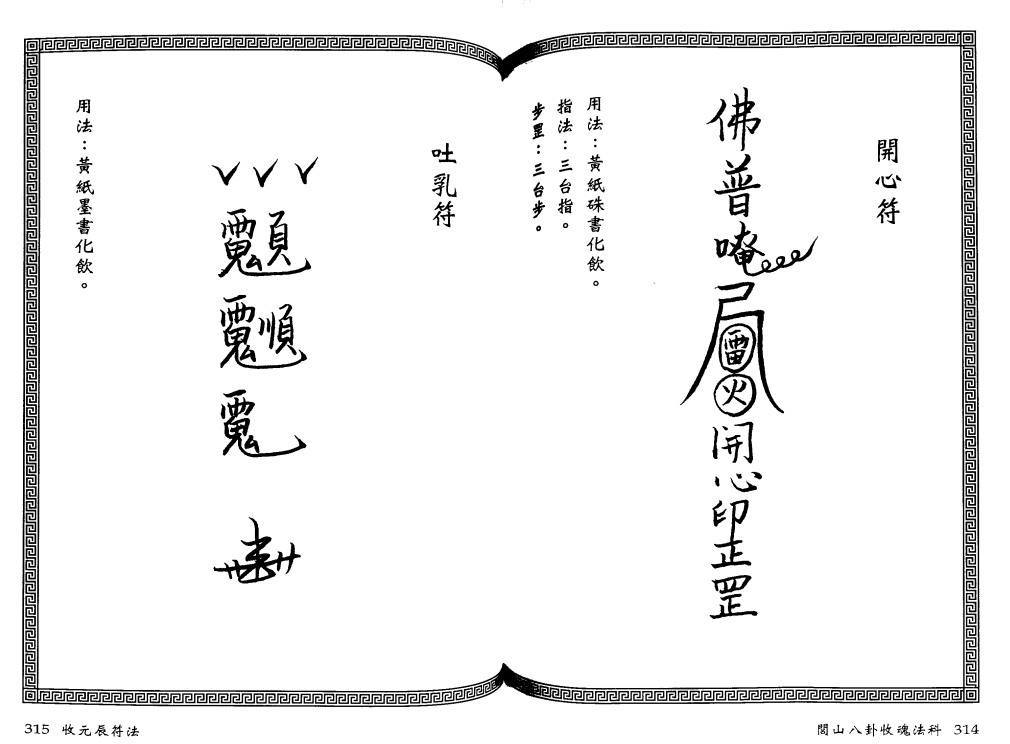 開心符
佛普唵
雷
火
開心印正罡
用法：黃紙硃書化飲。
指法：三台指。
步罡：三台步。
閭山八卦收魂法科 314
吐乳符
用法：黃紙墨書化飲。
315 收元辰符法